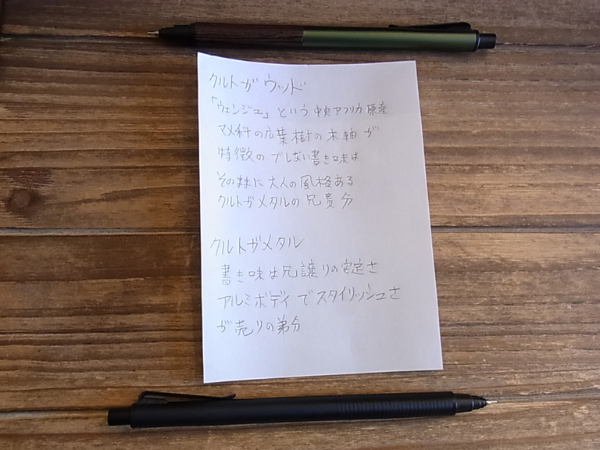 クルトガ ウッド
「ウェンジュ」という中央アフリカ原産
マメ科の広葉樹の木軸が
特徴のブレない書き味は
その様に大人の風格ある
クルトガメタルの兄貴分
クルトガメタル
書き味は兄譲りの安定さ
アルミボディでスタイリッシュさ
が売りの弟分